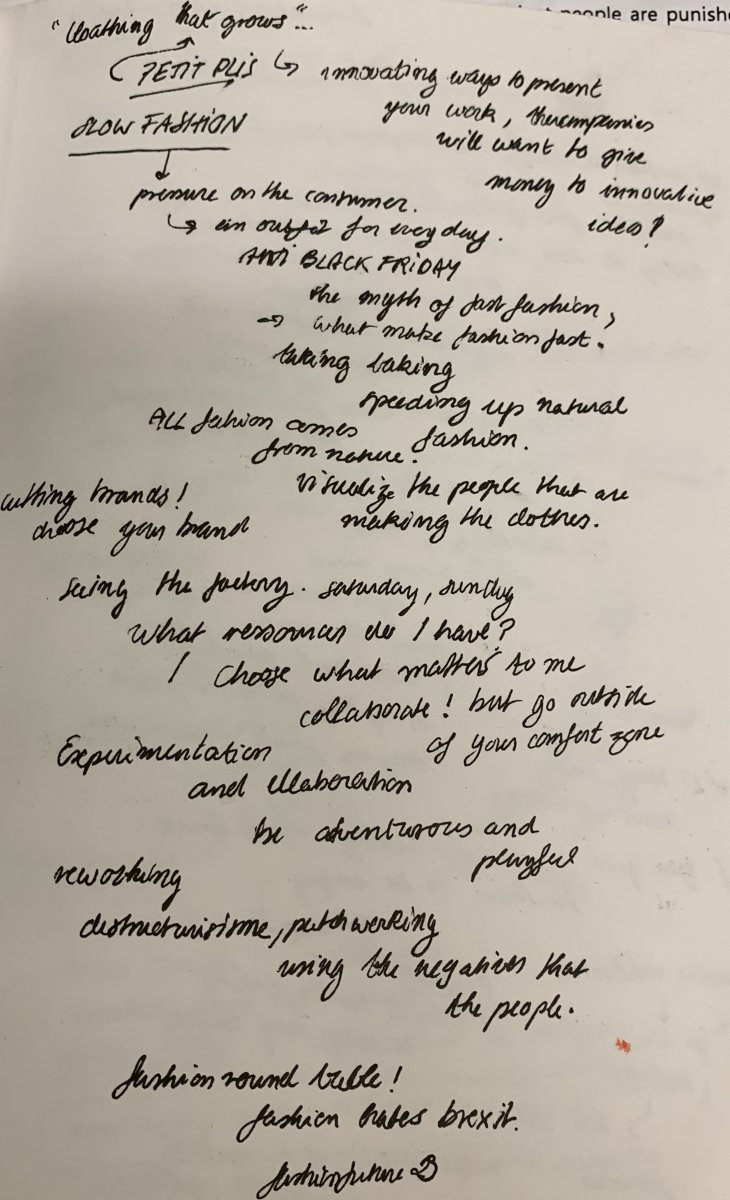 people are punishe
"Cloathing that grows"...
PETIT PLIS ↳ innovating ways to present
your work, the companies
SLOW FASHION
will want to give
money to innovative
ideas!
pressure on the consumer.
↳ an outfit for everyday.
ANTI BLACK FRIDAY
the myth of fast fashion,
→ what make fashion fast.
taking taking
speeding up natural
fashion.
ALL fashion comes
from nature.
visualize the people that are
making the clothes.
cutting brands!
choose your brand
seing the factory. saturday, sunday
What ressources do I have?
I choose what matters to me
collaborate! but go outside
of your comfort zone
Experimentation
and
be adventurous and
playful
reworking
destructurisisme, patchworking
using the negatives that
the people.
fashion round table!
fashion hates brexit.